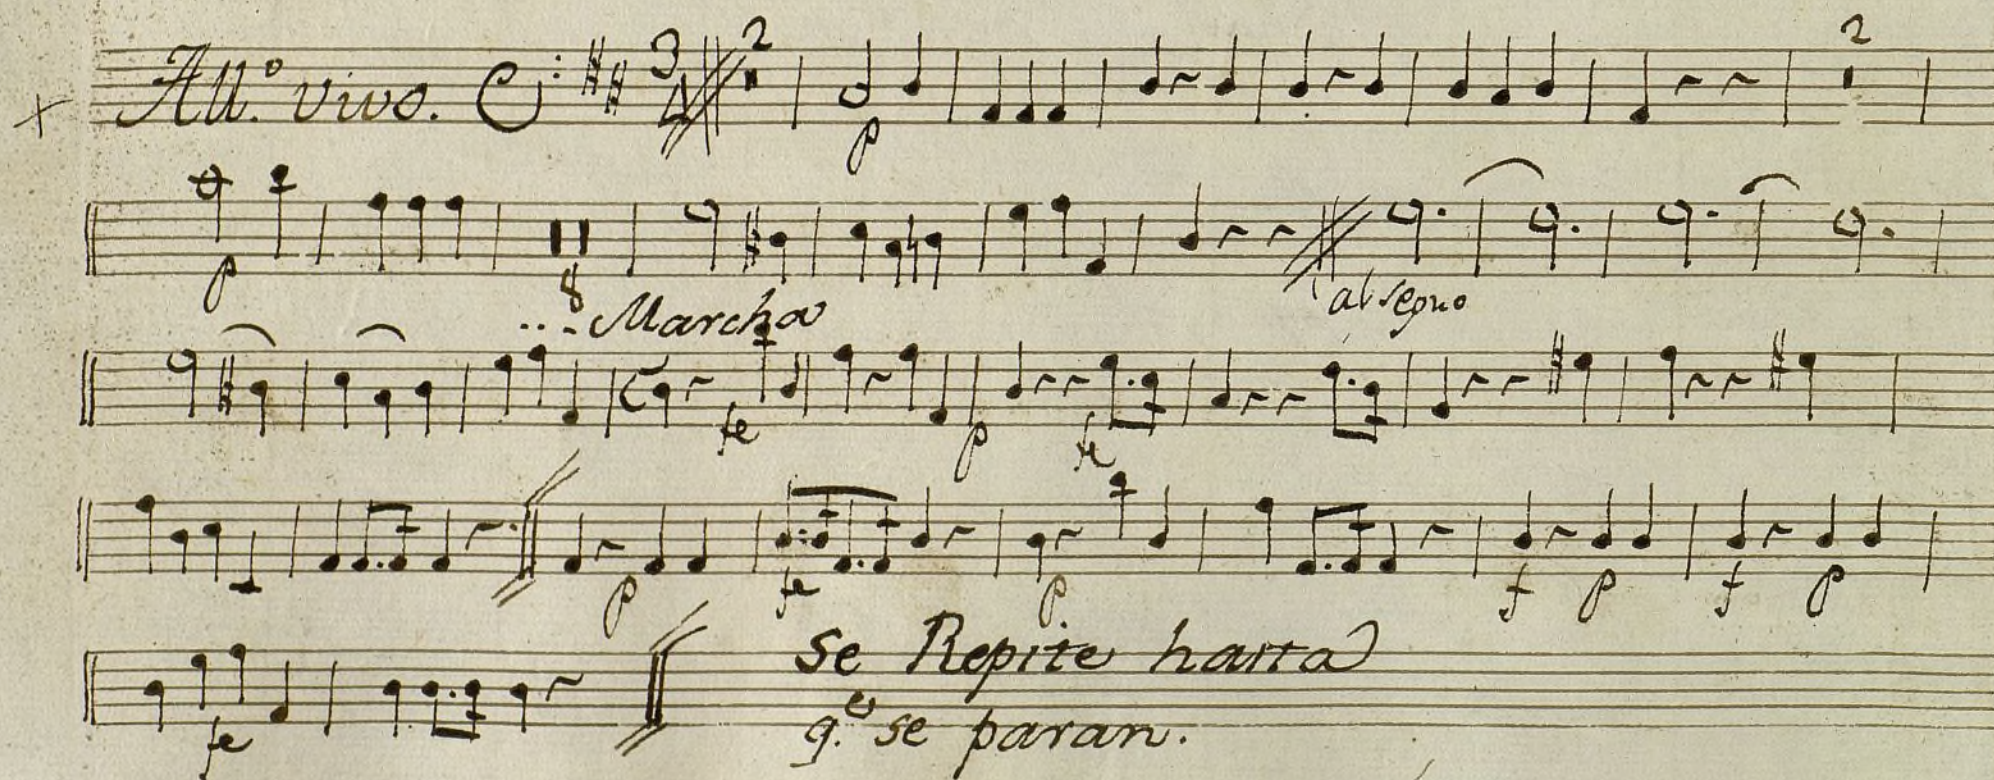 All.º vivo. 3 4 2 2
p
p 8 al segno
Marcha
fe p fe
p fe p f p f p
fe Se Repite hasta
q.e se paran.